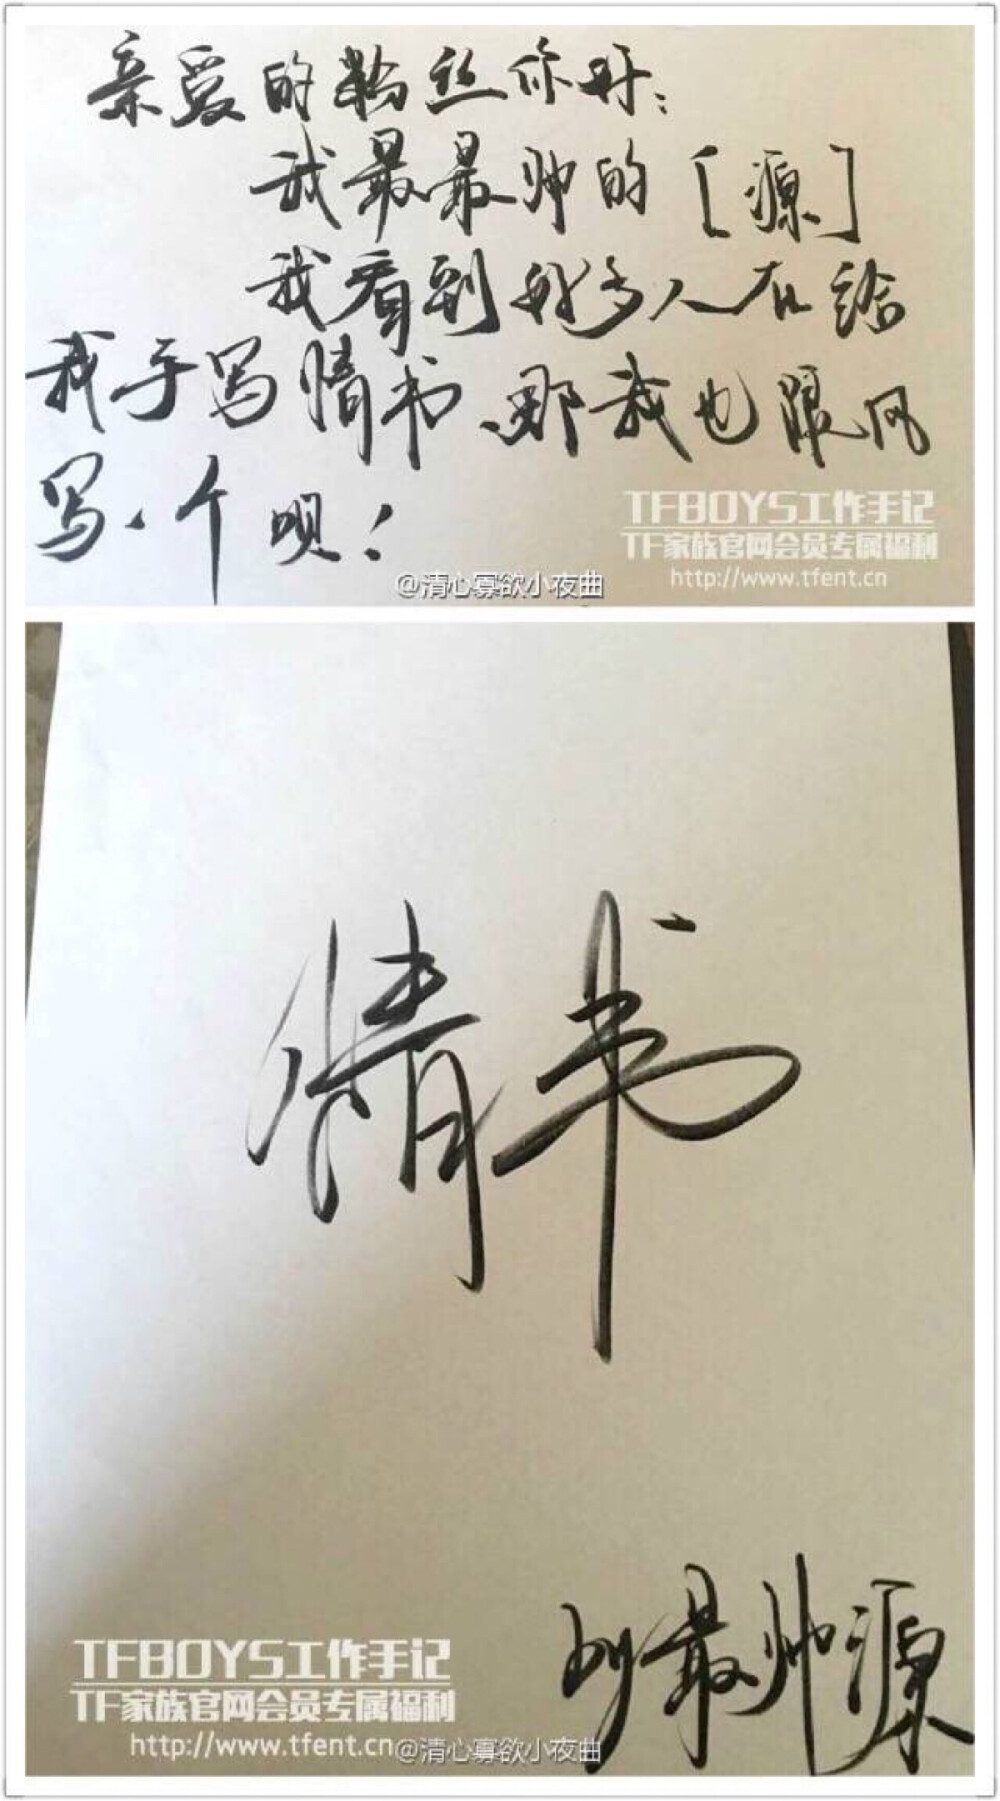 亲爱的粉丝你好：
我最最帅的［源］
我看到好多人在给
我手写情书、那我也跟风
写一个呗！
TFBOYS工作手记
TF家族官网会员专属福利
http://www.tfent.cn
@清心寡欲小夜曲
情书
by最帅源
TFBOYS工作手记
TF家族官网会员专属福利
http://www.tfent.cn
@清心寡欲小夜曲